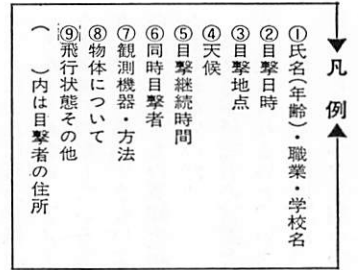 凡例
①氏名(年齢)・職業・学校名
②目撃日時
③目撃地点
④天候
⑤目撃継続時間
⑥同時目撃者
⑦観測機器・方法
⑧物体について
⑨飛行状態その他
(　)内は目撃者の住所